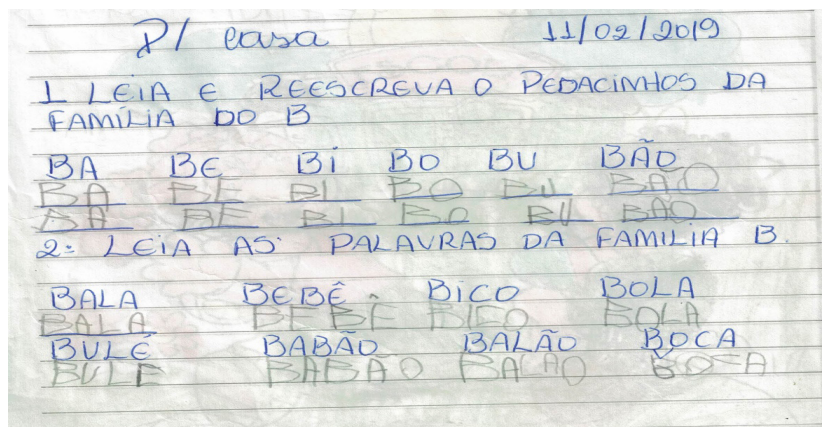 P/ casa 11/02/2019
1 LEIA E REESCREVA O PEDACINHOS DA
FAMÍLIA DO B
BA BE BI BO BU BÃO
BA BE BI BO BU BAO
BA BE BI BO BU BAO
2= LEIA AS PALAVRAS DA FAMILIA B.
BALA BEBÊ BICO BOLA
BALA BEBÊ BICO BOLA
BULE BABÃO BALÃO BOCA
BULE BABÃO BALAO BOCA